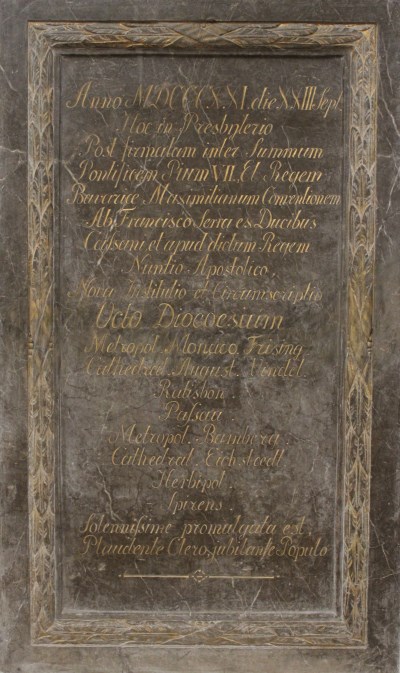 Anno MDCCCXXI. die XXIII Sept.
Hoc in Presbyterio
Post firmulam inter Summum
Pontificem Pium VII. Et Regem
Bavariæ Maximilianum Conventionem
Ab Francisco Serra es Ducibus
Cassani et apud dictum Regem
Nuntio Apostolico,
Nova institutio et Circumscriptio
Octo Dioecesium
Metropol. Monaco Frising
Cathedral. August. Vindel.
Ratisbon.
Passau.
Metropol. Bamberg.
Cathedral. Eichstedt
Herbipol.
Spirens.
Solemnissime promulgata est.
Plaudente Clero, jubilante Populo